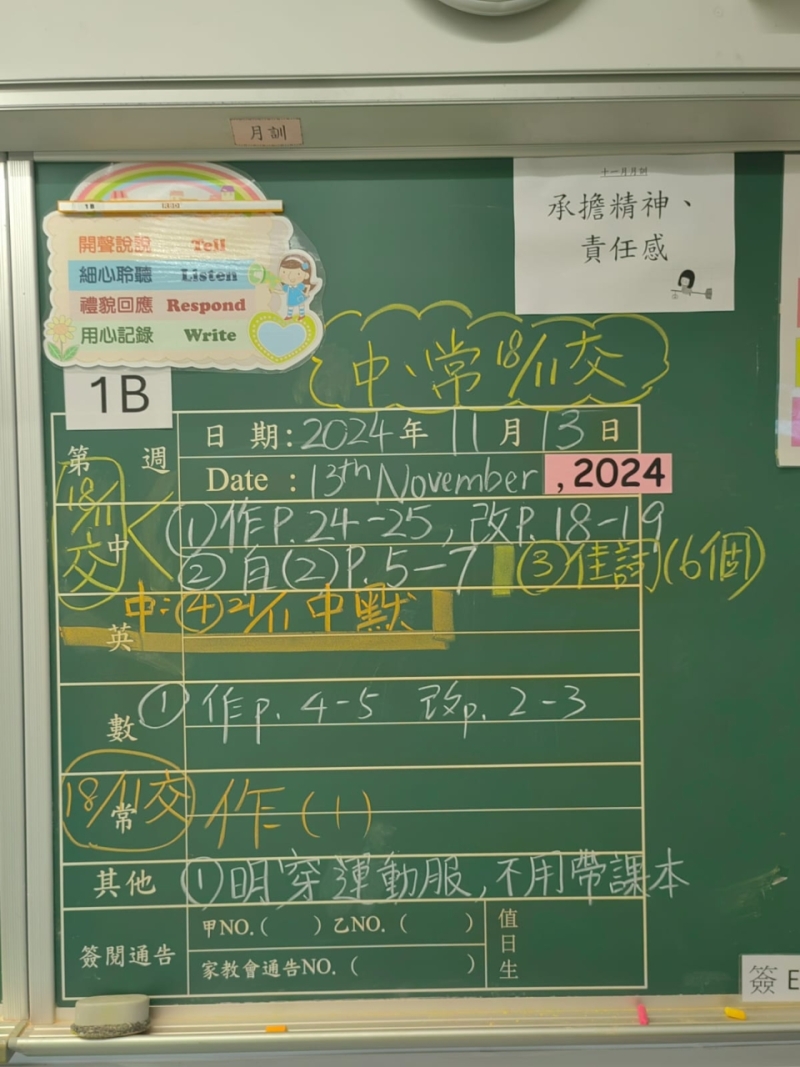 月訓
十一月月訓
承擔精神、
責任感
1B
開聲說說 Tell
細心聆聽 Listen
禮貌回應 Respond
用心記錄 Write
1B
中、常 18/11交
第 週
日 期:2024年 11月 13日
Date : 13th November , 2024
18/11交
中 ①作P.24-25,改P.18-19
②自(2)P.5-7 ③佳詞(6個)
中:④21/11 中默
英
數 ①作p. 4-5 改p. 2-3
18/11交
常 作(1)
其他 ①明穿運動服,不用帶課本
簽閱通告 甲NO.( ) 乙NO.( )
家教會通告NO.( )
值日生
簽 E